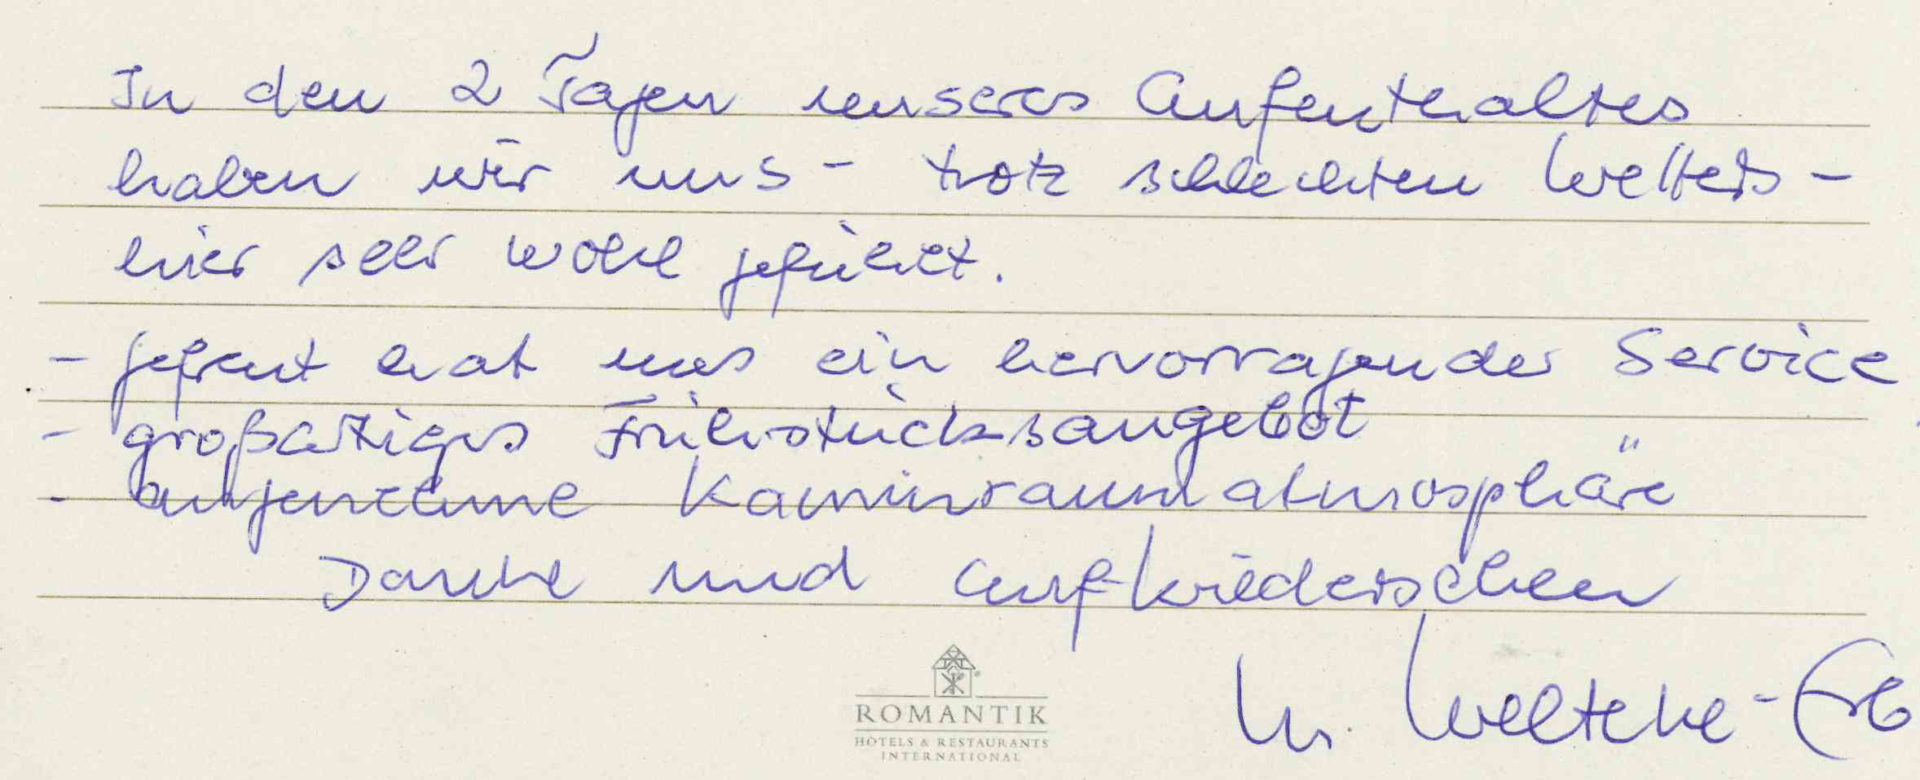 In den 2 Tagen unseres Aufenthaltes
haben wir uns - trotz schlechten Wetters -
hier sehr wohl gefühlt.
- gefreut hat uns ein hervorragender Service
- großartiges Frühstücksangebot
- angenehme Kaminraumatmosphäre
Danke und aufwiedersehen
Welteke-Erb
ROMANTIK
HOTELS & RESTAURANTS
INTERNATIONAL